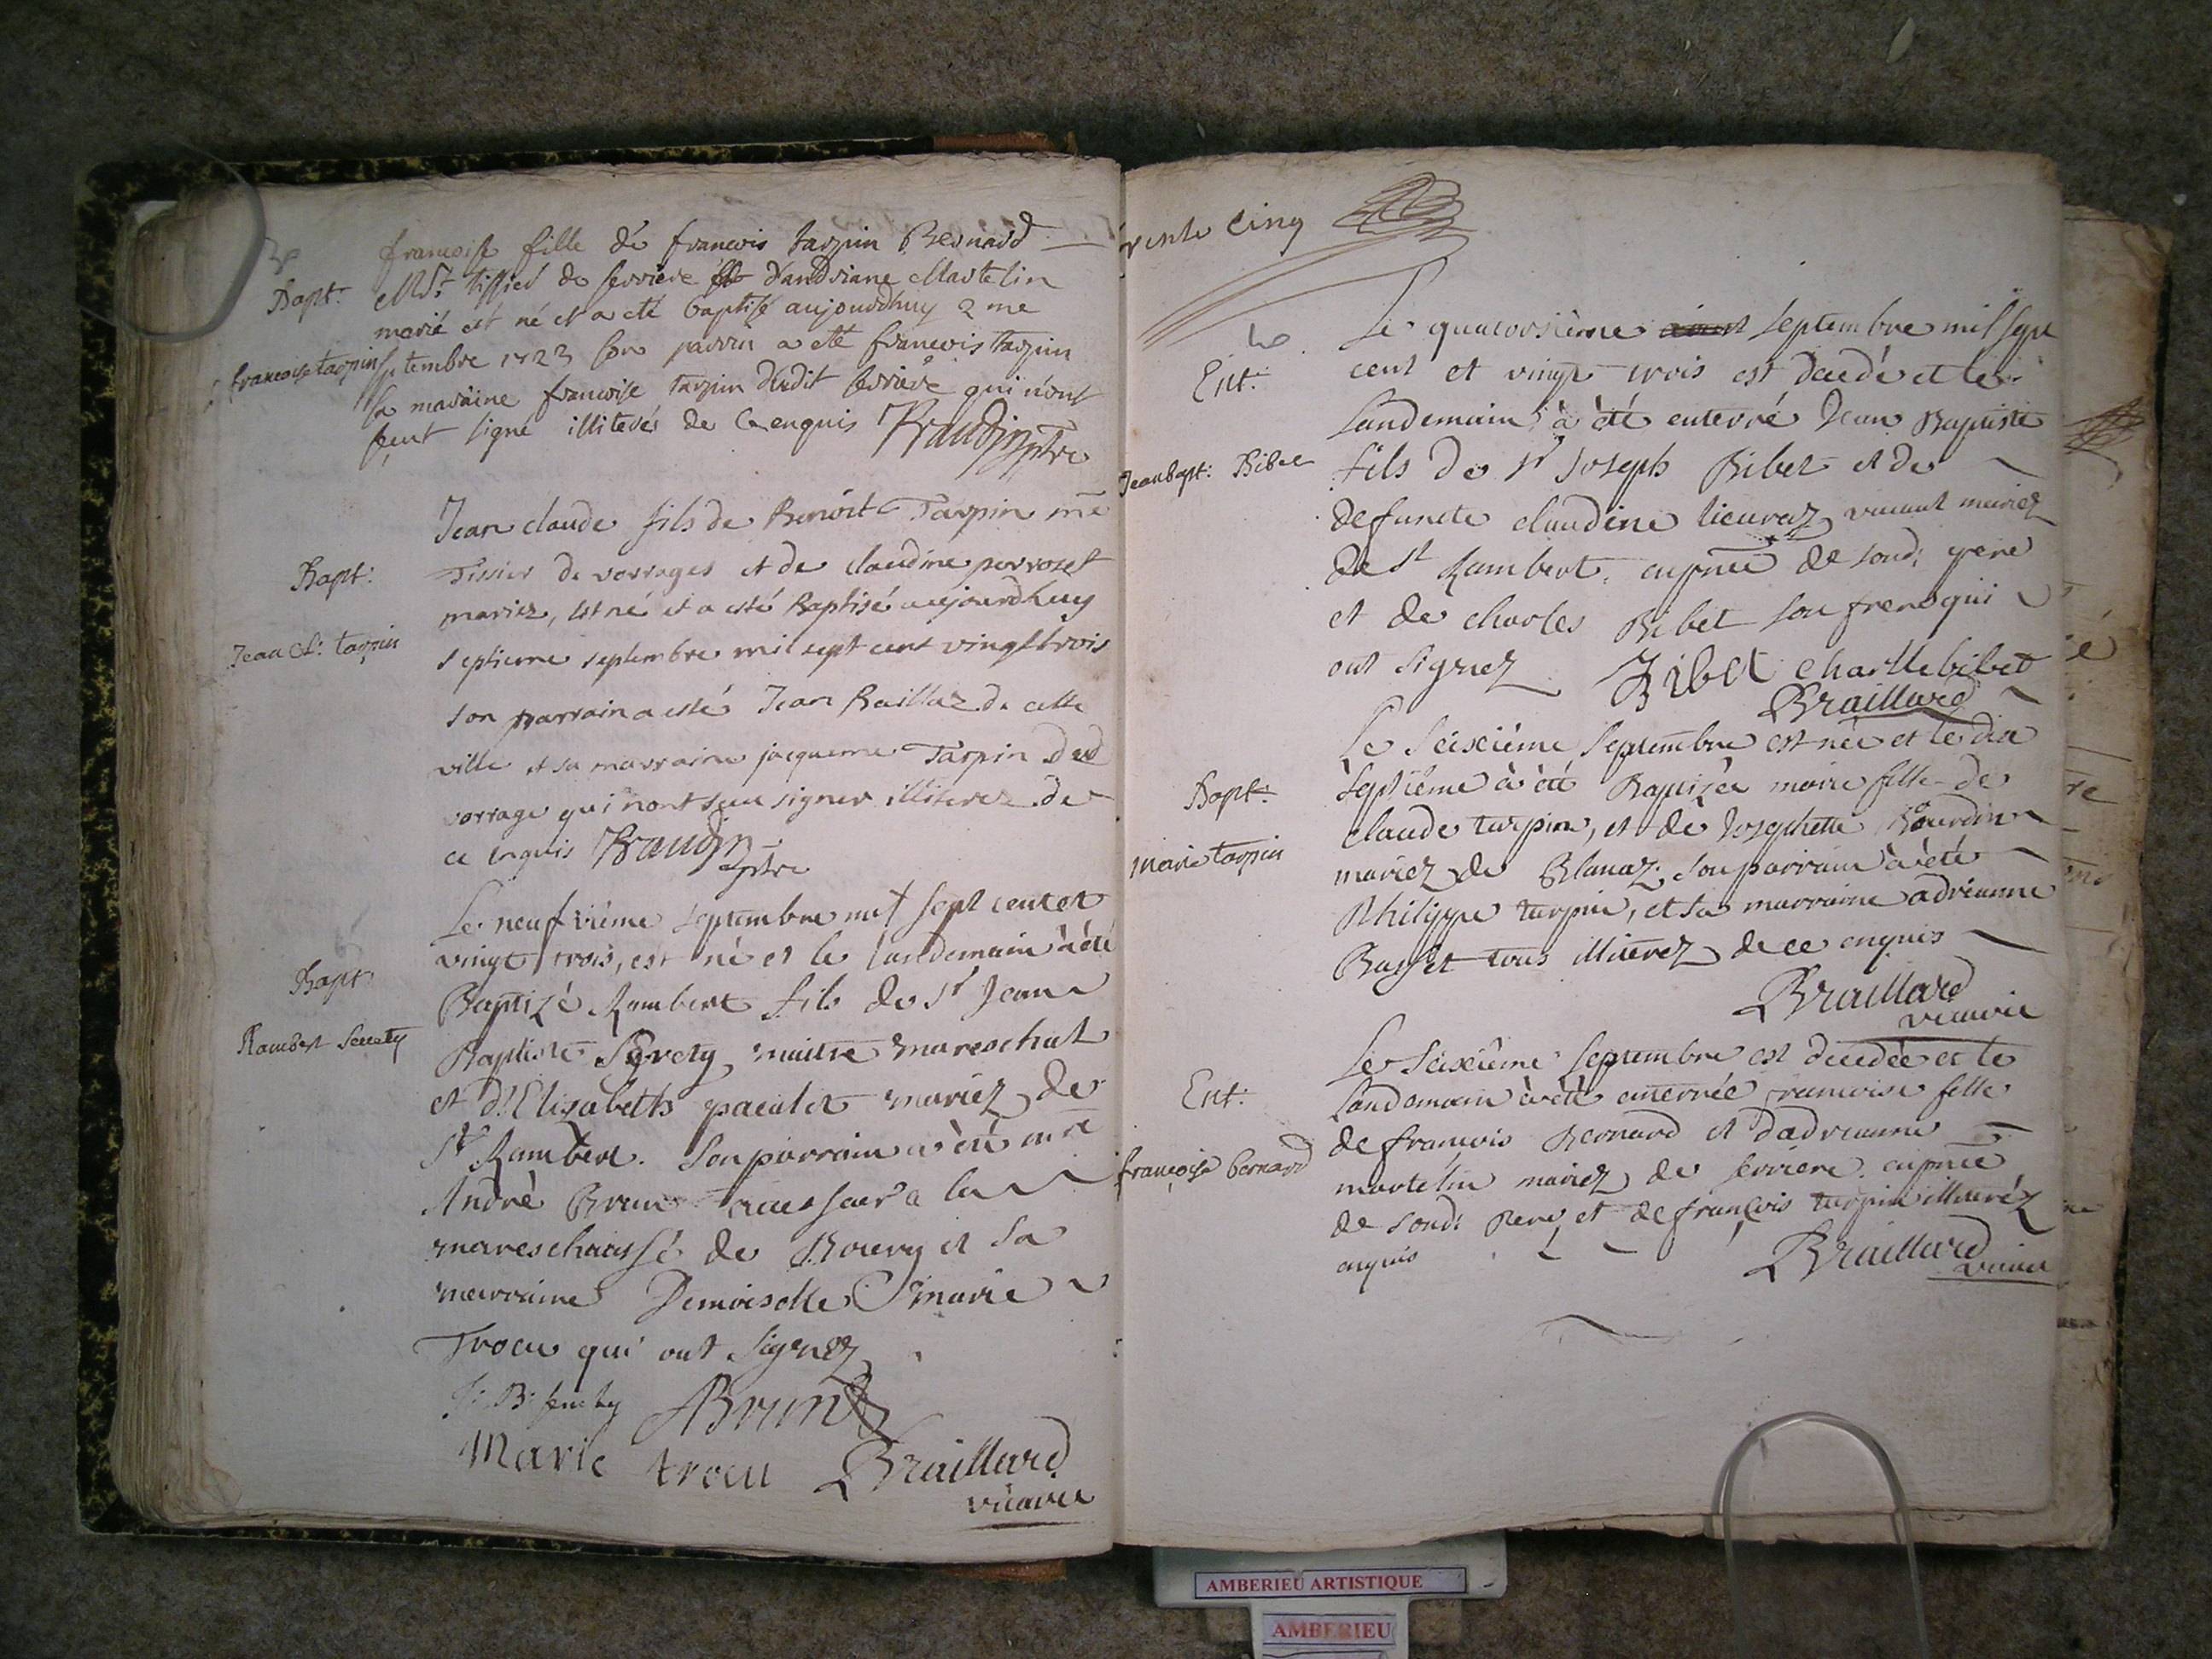 Bapt.
francoise tarpin
francoise fille de francois tarpin Bernard
M.r tissier de serriere d'andriane Martelin
marié est né et a eté baptisé aujourdhuy 2 me
septembre 1723 son parrin a eté francois tarpin
sa maraine francoise tarpin dudit serriere qui n'ont
sçeut signé illiterés de ce enquis Braudin ptre
Bapt.
Jean Cl. tarpin
Jean claude fils de Benoit Tarpin me
Tissier de vorrages et de claudine perroset
mariez, est né et a esté Baptisé aujourdhuy
septieme septembre mil sept cent vingt trois
son parrain a esté Jean Baillaz de cette
ville et sa marraine jacqueme Tarpin dud
vorrage qui n'ont sceu signer illiterez de
ce enquis Braudin ptre
Bapt.
Rambert
Le neufvième septembre mil sept cent et
vingt trois, est né et le landemain à été
Baptizé Rambert fils de Sr Jean
Baptiste maitre mareschal
et d. Elisabeth mariez de
St Rambert. Son parrain a été
André Brun a la
mareschaussé de Bourg et sa
marraine Demoiselle Marie
Trocu qui ont Signez
J. B. ABrun
Marie trocu Braillard
vicaire
trente cinq
Ent.
Jean bapt. Bibet
Le quatorsième septembre mil sept
cent et vingt trois est decedé et le
landemain à été enterré Jean Baptiste
fils de Sr Joseph Bibet et de
defuncte claudine lieuraz vivant mariez
de St Rambert. en pnce de soud. pere
et de charles Bibet son frere qui
ont Signez Bibet charlle bibet
Braillard
Bapt.
Marie tarpin
Le Seiscième Septembre est née et le dix
septième à été Baptizée marie fille de
claude tarpin, et de Josephette Bourdin
mariez de Blanaz. son parrain à été
Philippe tarpin, et sa marraine adrianne
Basset tous illiterez de ce enquis
Braillard
vicaire
Ent.
françoise bernard
Le Seiscième Septembre est decedée et le
landemain à été enterrée francoise fille
de francois Bernard et d'adrianne
martelin mariez de serriere. en pnce
de soud. Pere, et de françois tarpin illiterez
enquis Braillard
vicaire
AMBERIEU ARTISTIQUE
AMBERIEU